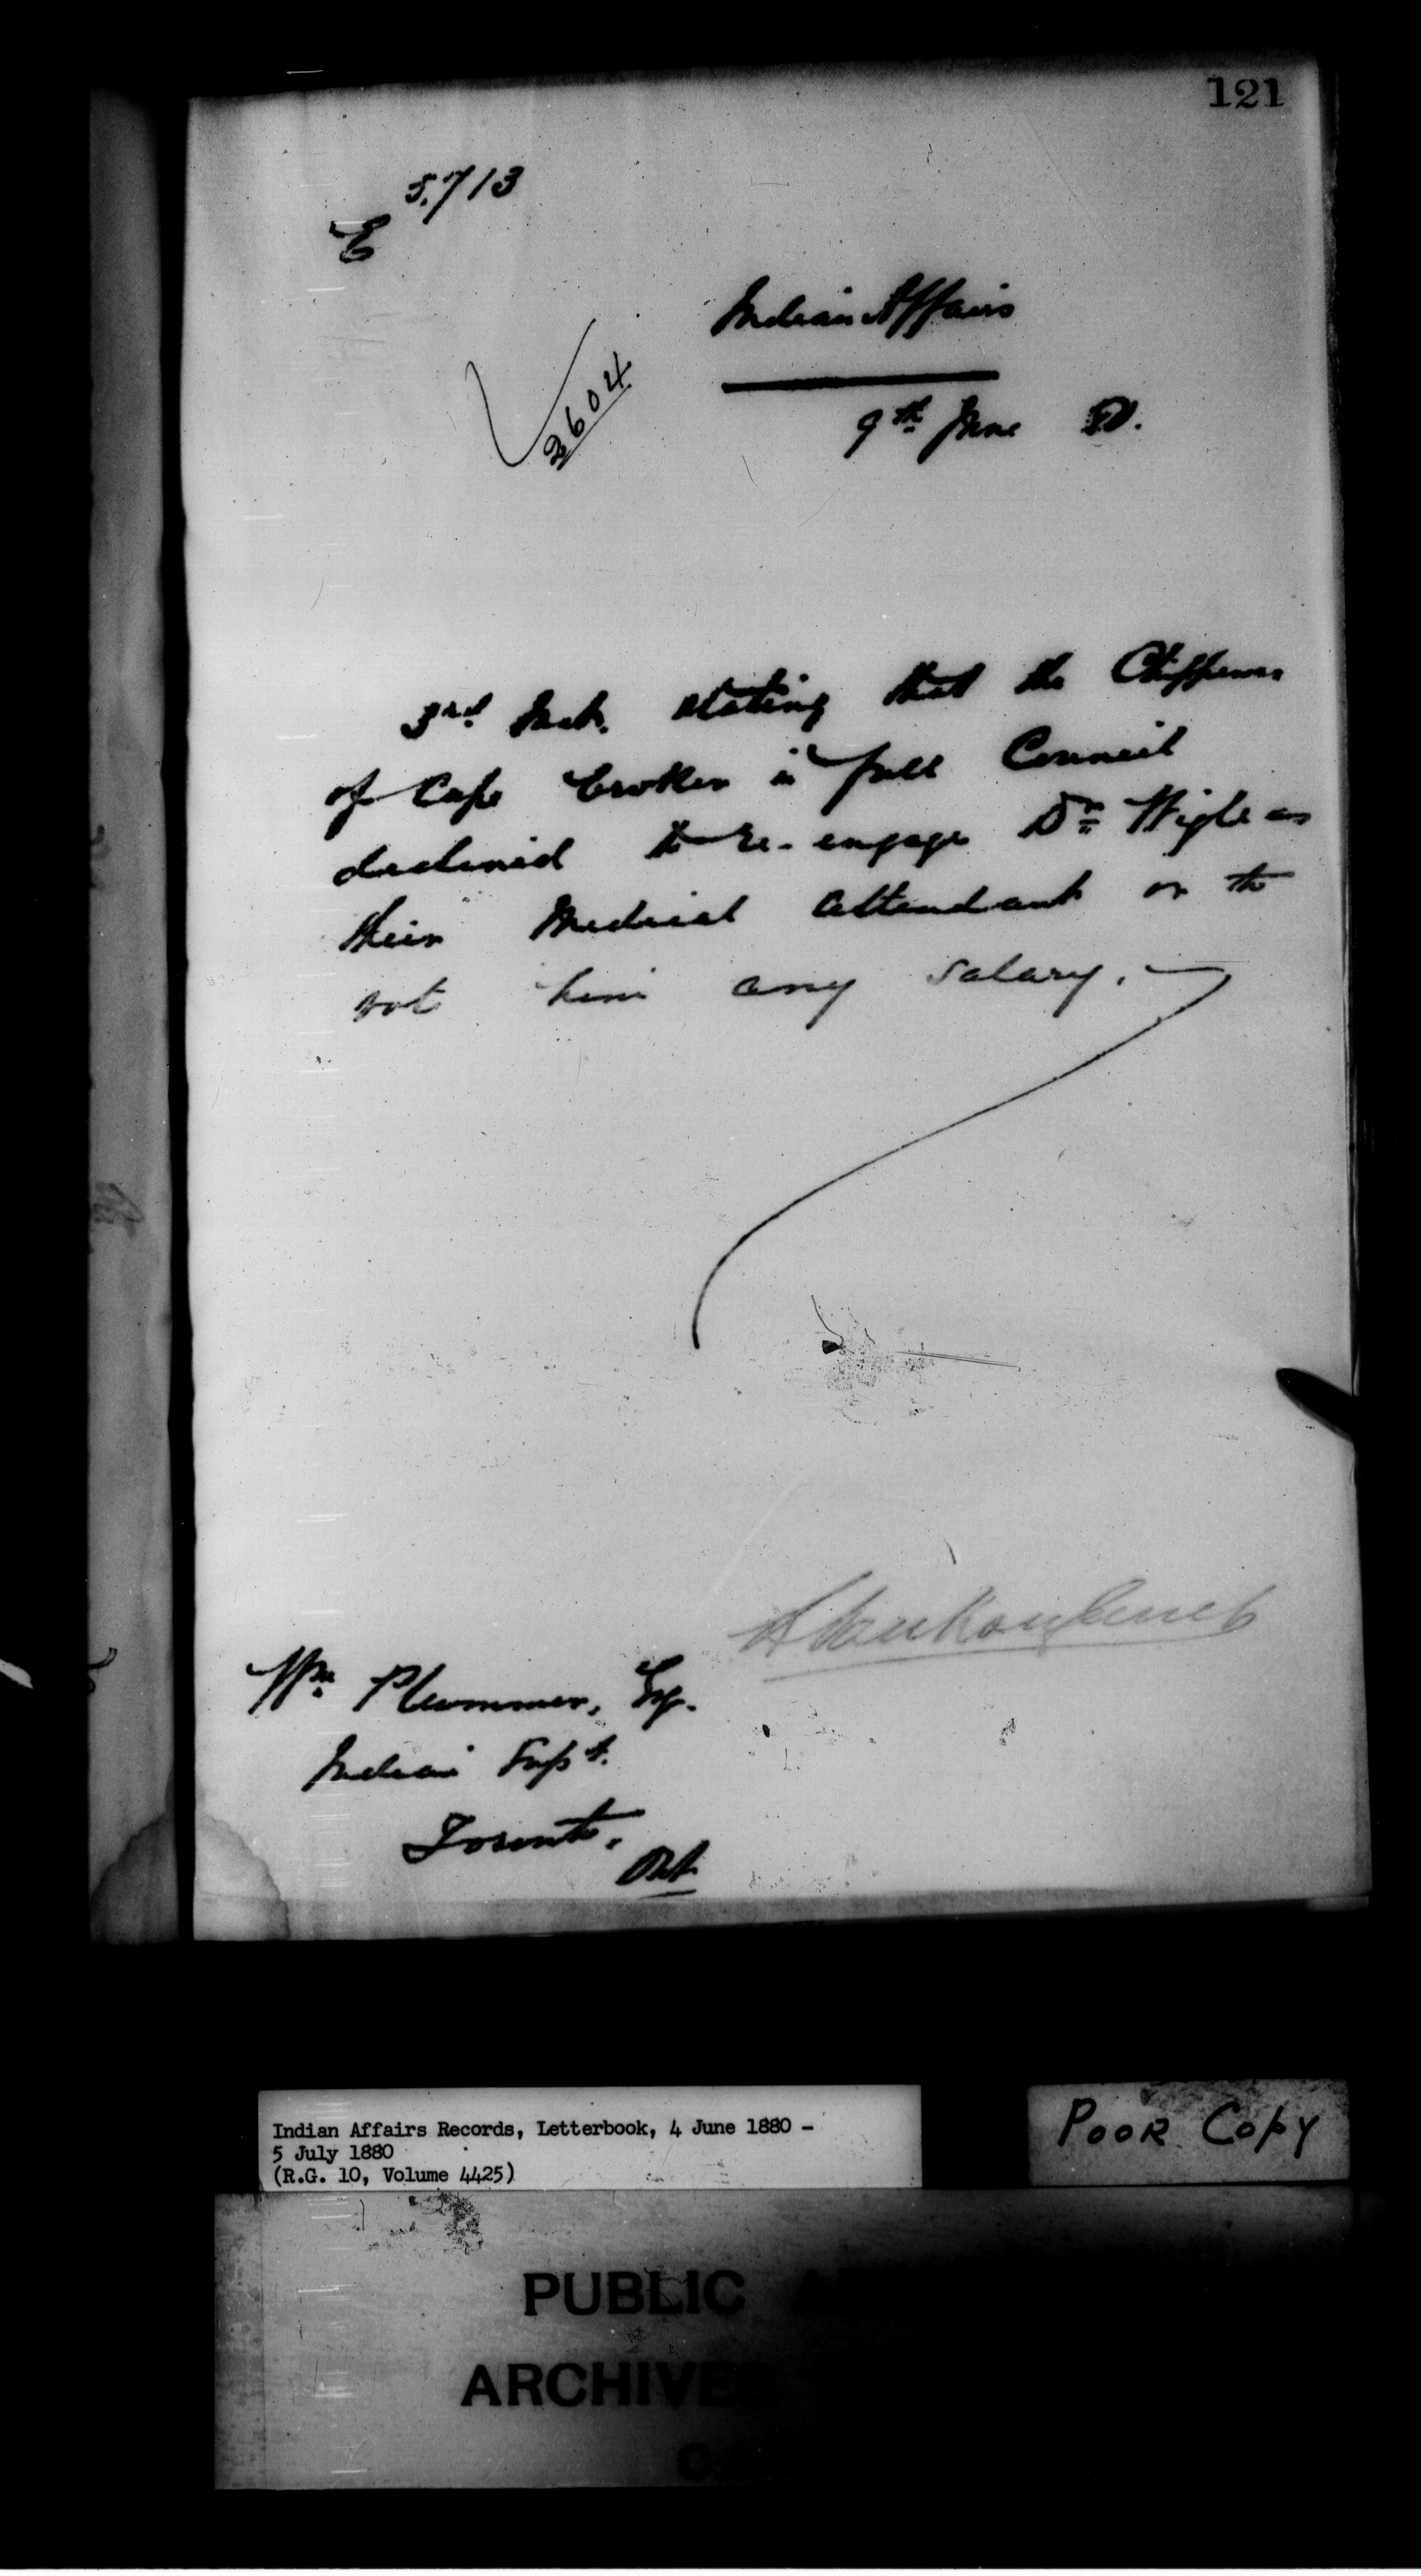 121
5.713
E
Indian Affairs
2604
9th June 80.
3rd Inst. stating that the Chippewas
of Cape Croker in full Council
declined to re-engage Dr Wigle as
their Medical Attendant or to
vote him any salary.
Wm Plummer, Esq.
Indian Supt.
Toronto.
Ont
Indian Affairs Records, Letterbook, 4 June 1880 -
5 July 1880
(R.G. 10, Volume 4425)
POOR COPY
PUBLIC
ARCHIVES